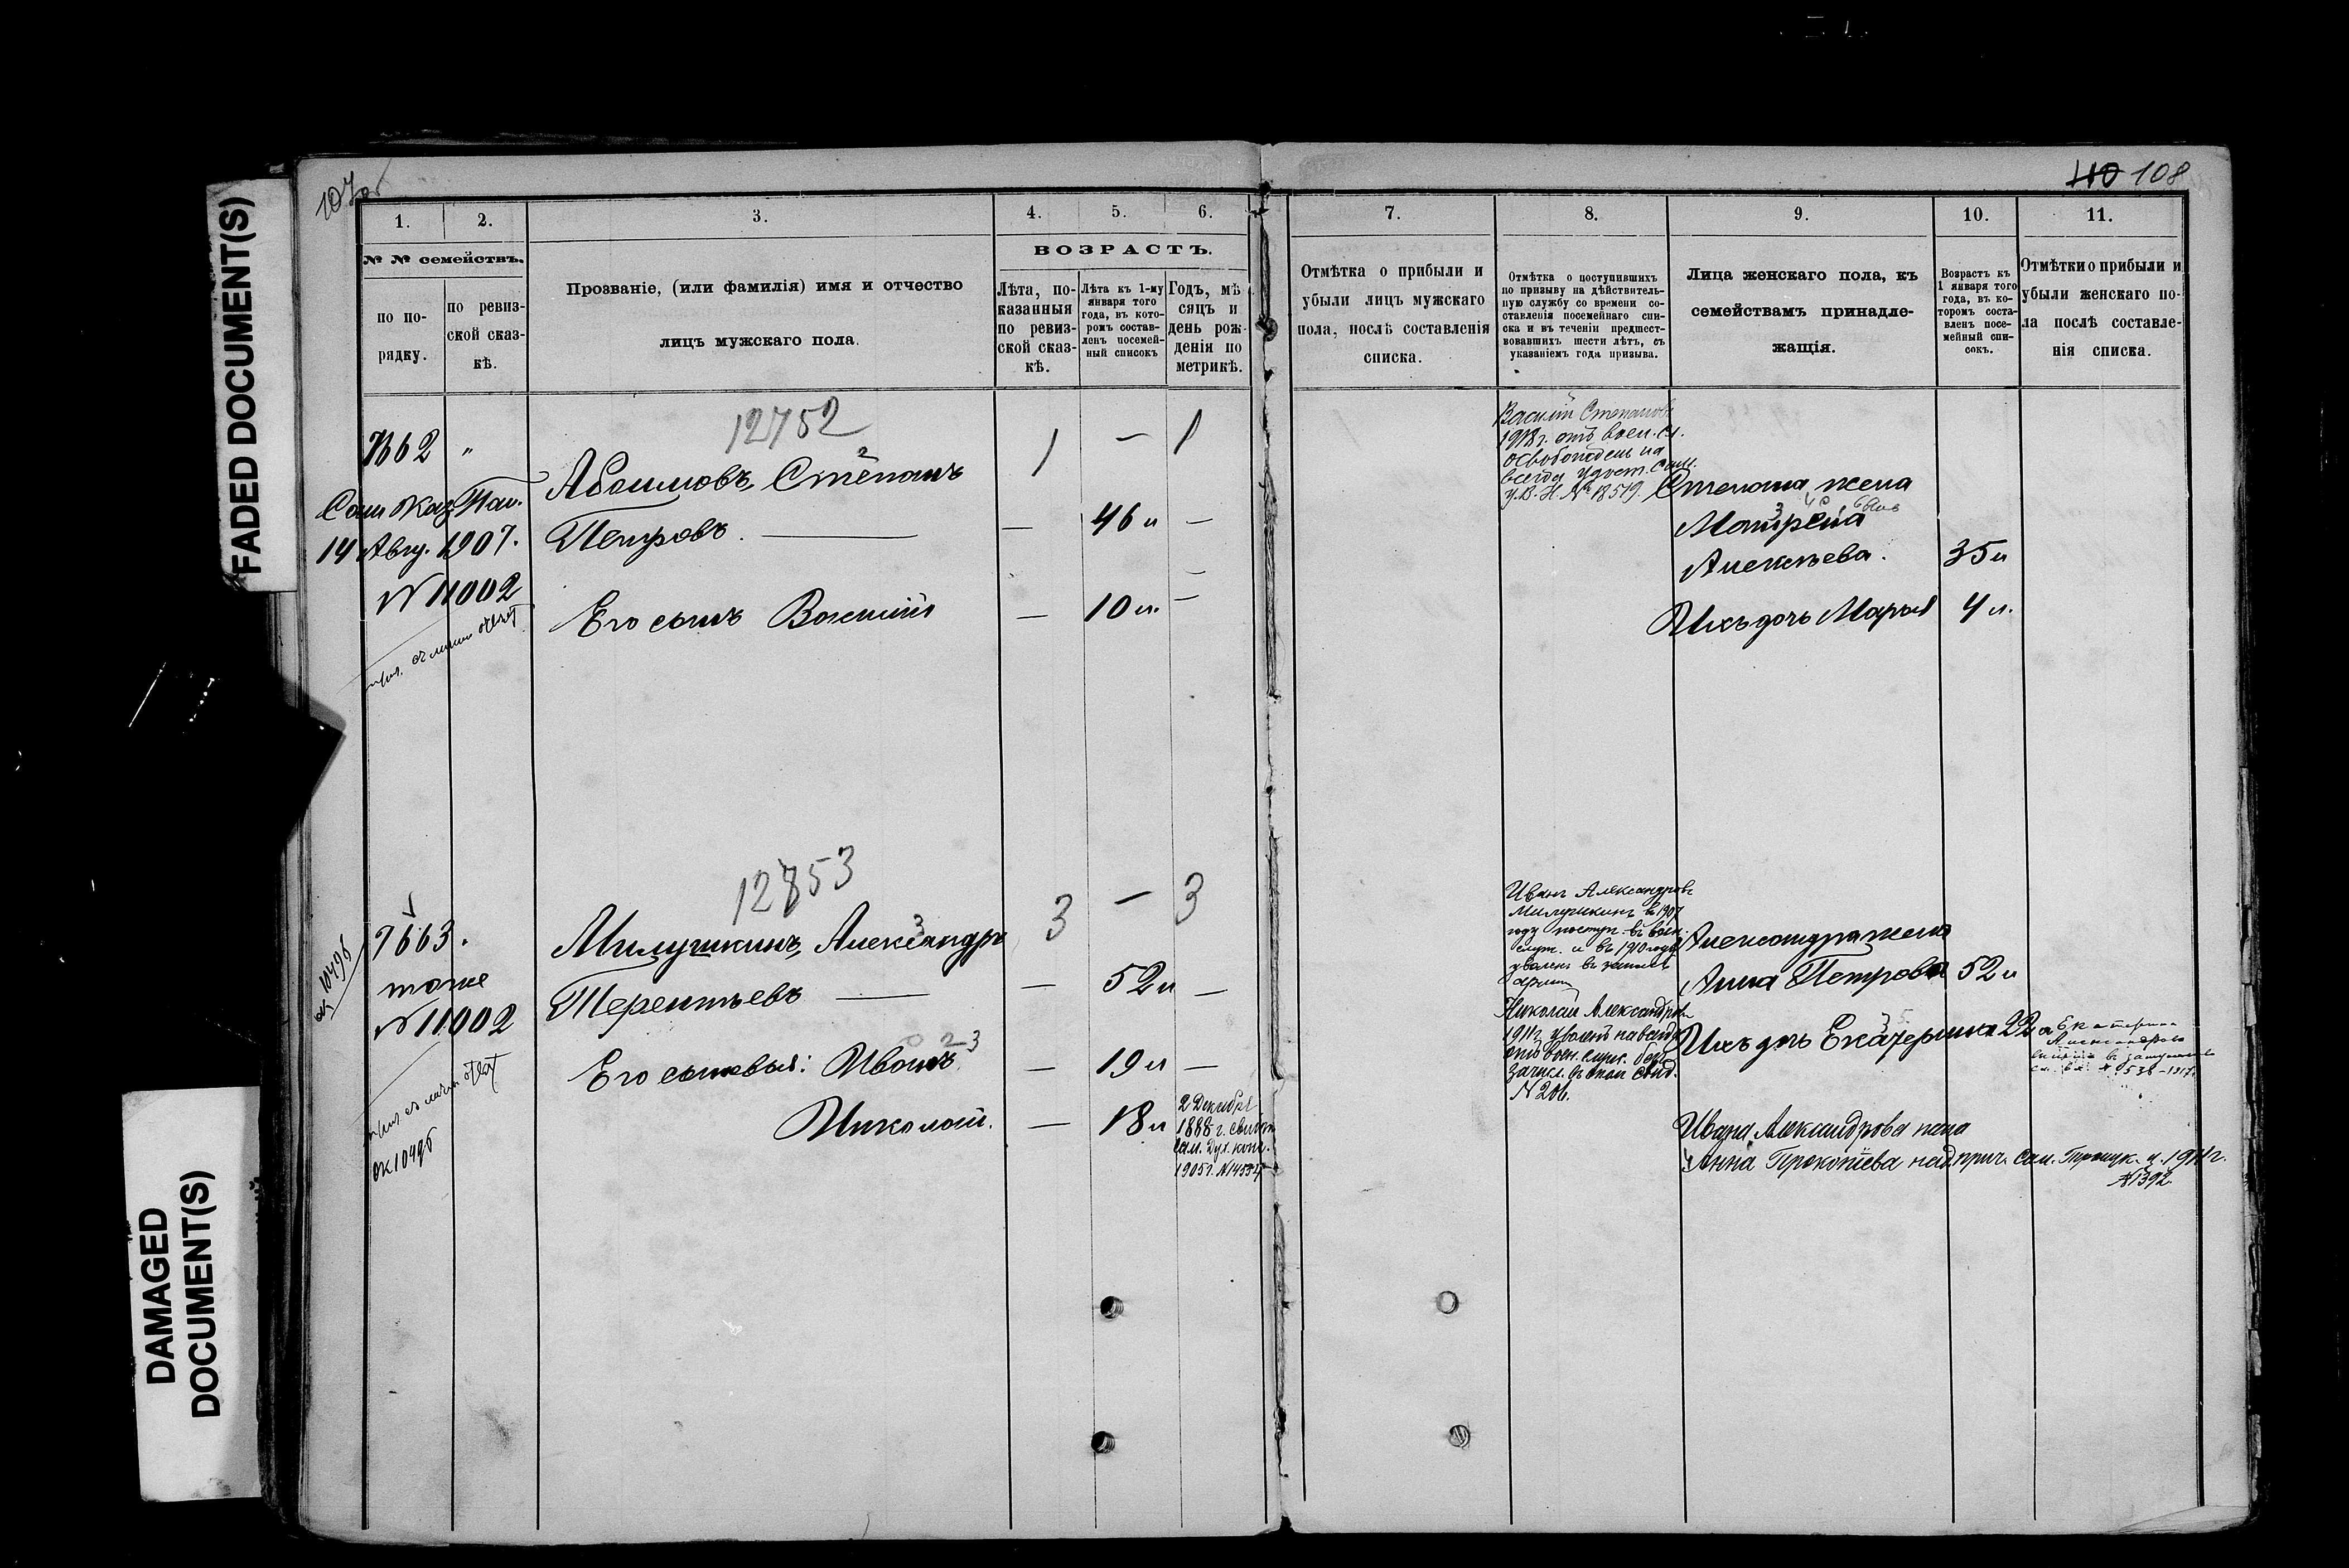 FADED DOCUMENT(S)
DAMAGED
DOCUMENT(S)
107об
110 108
1. 2. 3. 4. 5. 6.
№ № семействъ.
по по-
рядку.
по ревиз-
ской сказ-
кѣ.
Прозваніе, (или фамилія) имя и отчество
лицъ мужскаго пола.
ВОЗРАСТЪ.
Лѣта, по-
казанныя
по ревиз-
ской сказ-
кѣ.
Лѣта къ 1-му
января того
года, въ кото-
ромъ состав-
ленъ посемей-
ный списокъ
Годъ, мѣ-
сяцъ и
день рож-
денія по
метрикѣ.
7. 8. 9. 10. 11.
Отмѣтка о прибыли и
убыли лицъ мужскаго
пола, послѣ составленія
списка.
Отмѣтка о поступившихъ
по призыву на дѣйствитель-
ную службу со времени со-
ставленія посемейнаго спи-
ска и въ теченіи предшест-
вовавшихъ шести лѣтъ, съ
указаніемъ года призыва.
Лица женскаго пола, къ
семействамъ принадле-
жащія.
Возрастъ къ
1 января того
года, въ ко-
торомъ соста-
вленъ посе-
мейный спи-
сокъ.
Отмѣтки о прибыли и
убыли женскаго по-
ла послѣ составле-
нія списка.
12752
7662 "
1 — 1
Абоимовъ Степанъ
2
Сам. Каз. Пал.
14 Авгу. 1907.
Петровъ. — — 46 л —
N 11002
Его сынъ Василій — 10 л. —
Василій Степановъ
1918 г. отъ воен. сл.
освобожденъ на
всегда удост. Сам.
У. В. Н. № 18519.
Степана жена
Матрена
Алексѣева. 35 л
Ихъ дочь Марья 4 л.
12853
3 — 3
7663.
тоже
N 11002
ОК 10496
Милушкинъ, Александръ
3
Терентьевъ — — 52 л —
Его сыновья: Иванъ — 19 л —
23
Николай. — 18 л
2 Декабря
1888 г. свид.
Сам. Дух. конс.
1905 г. N 14537
ОК 10496
Иванъ Александровъ
Милушкинъ въ 1907
году поступ. въ воен.
служ. и въ 1910 году
уволенъ въ запасъ
арміи
Николай Александров.
1911 г. уволенъ навсегда
отъ воен. служ.
N 206.
Александра жена
Анна Петрова 52 л
Ихъ дочь Екатерина 22 л
Екатерина
Александрова
Ивана Александрова жена
Анна Прокопіева над. прич. Сам. 1911 г.
№ 1392.